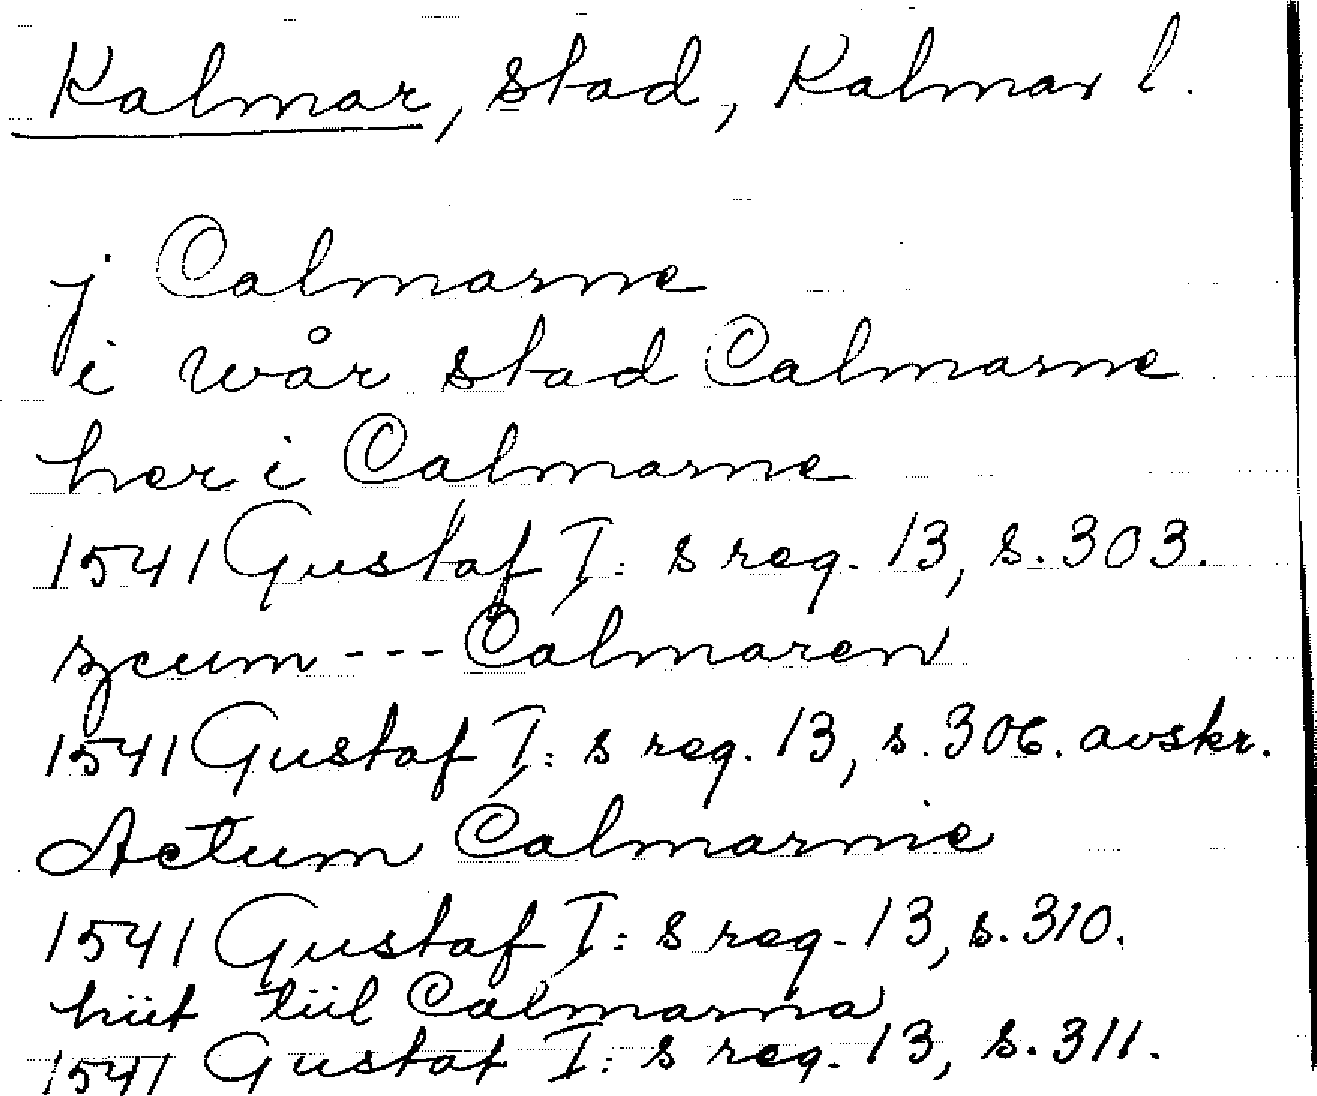 Kalmar, stad, Kalmar l.
j Calmarne
i wår stad Calmarne
her i Calmarne
1541 Gustaf I:s reg. 13, s. 303.
zcum --- Calmaren
1541 Gustaf I:s reg. 13, s. 306. avskr.
Actum Calmarnie
1541 Gustaf I:s reg. 13, s. 310.
hiit tiil Calmarna
1541 Gustaf I:s reg. 13, s. 311.